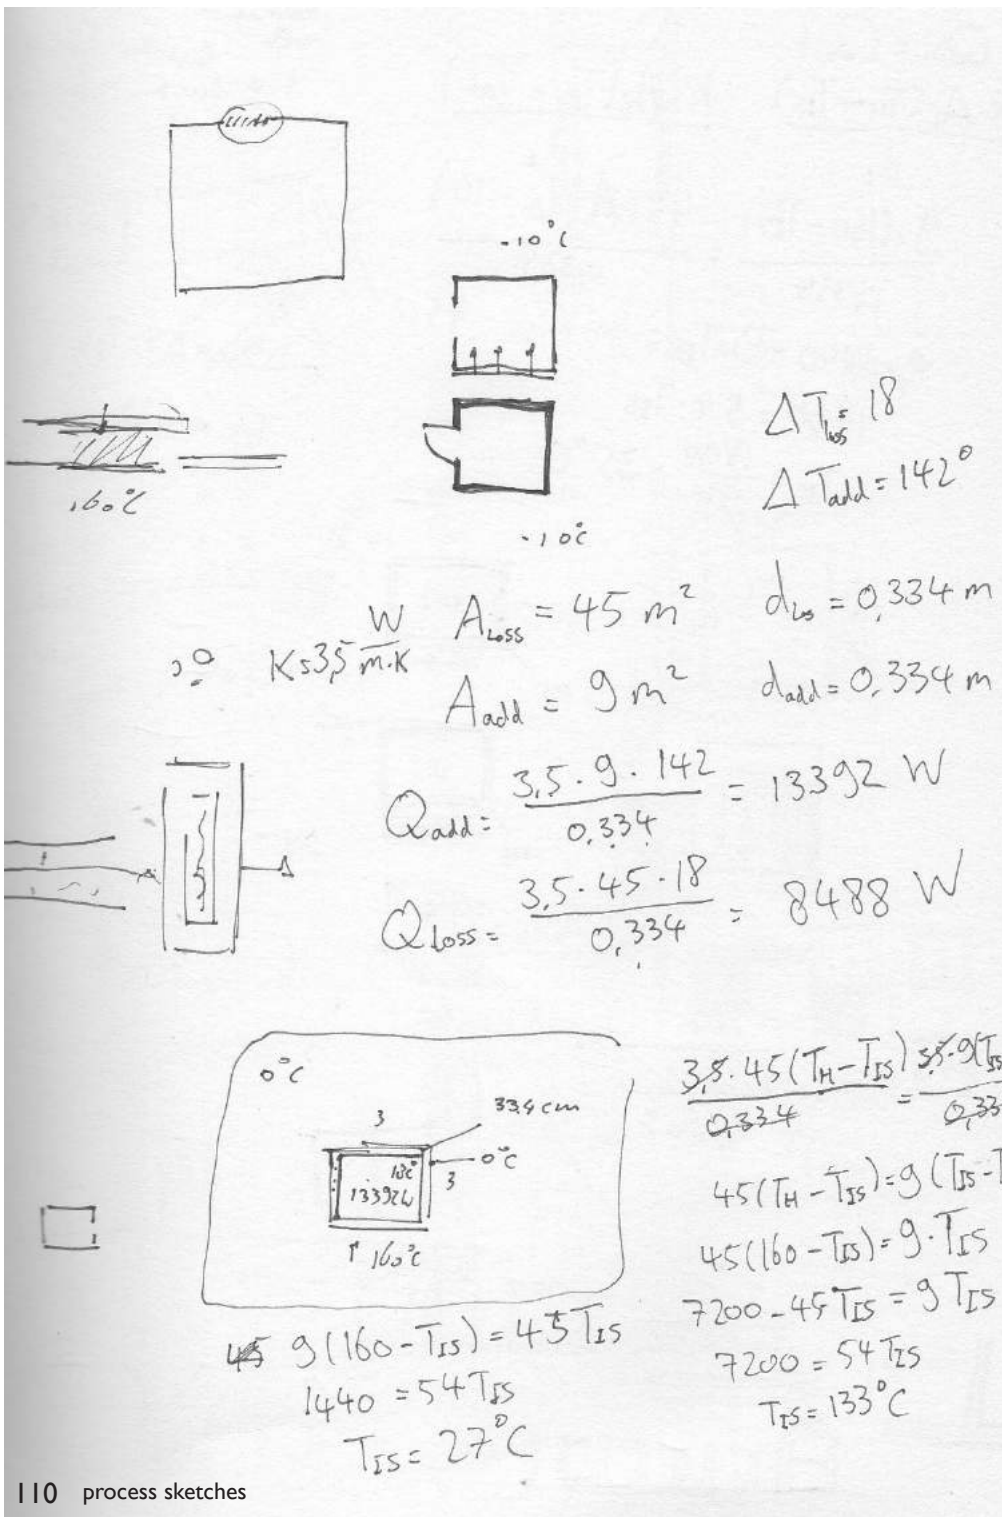 -10°C
ΔT_loss = 18
ΔT_add = 142°
160°C
-10°C
K=3,5 W/m·K
A_Loss = 45 m²
d_Los = 0,334 m
A_add = 9 m²
d_add = 0,334 m
Q_add = 3,5 · 9 · 142 / 0,334 = 13392 W
Q_Loss = 3,5 · 45 · 18 / 0,334 = 8488 W
0°C
33,4 cm
3
0°C
3
13392W
160°C
3,5 · 45 (T_H - T_IS) / 0,334 = 3,5 · 9 (T_IS / 0,33
45 (T_H - T_IS) = 9 (T_IS - T
45 (160 - T_IS) = 9 · T_IS
7200 - 45 T_IS = 9 T_IS
7200 = 54 T_IS
T_IS = 133°C
45 9 (160 - T_IS) = 45 T_IS
1440 = 54 T_IS
T_IS = 27°C
110 process sketches